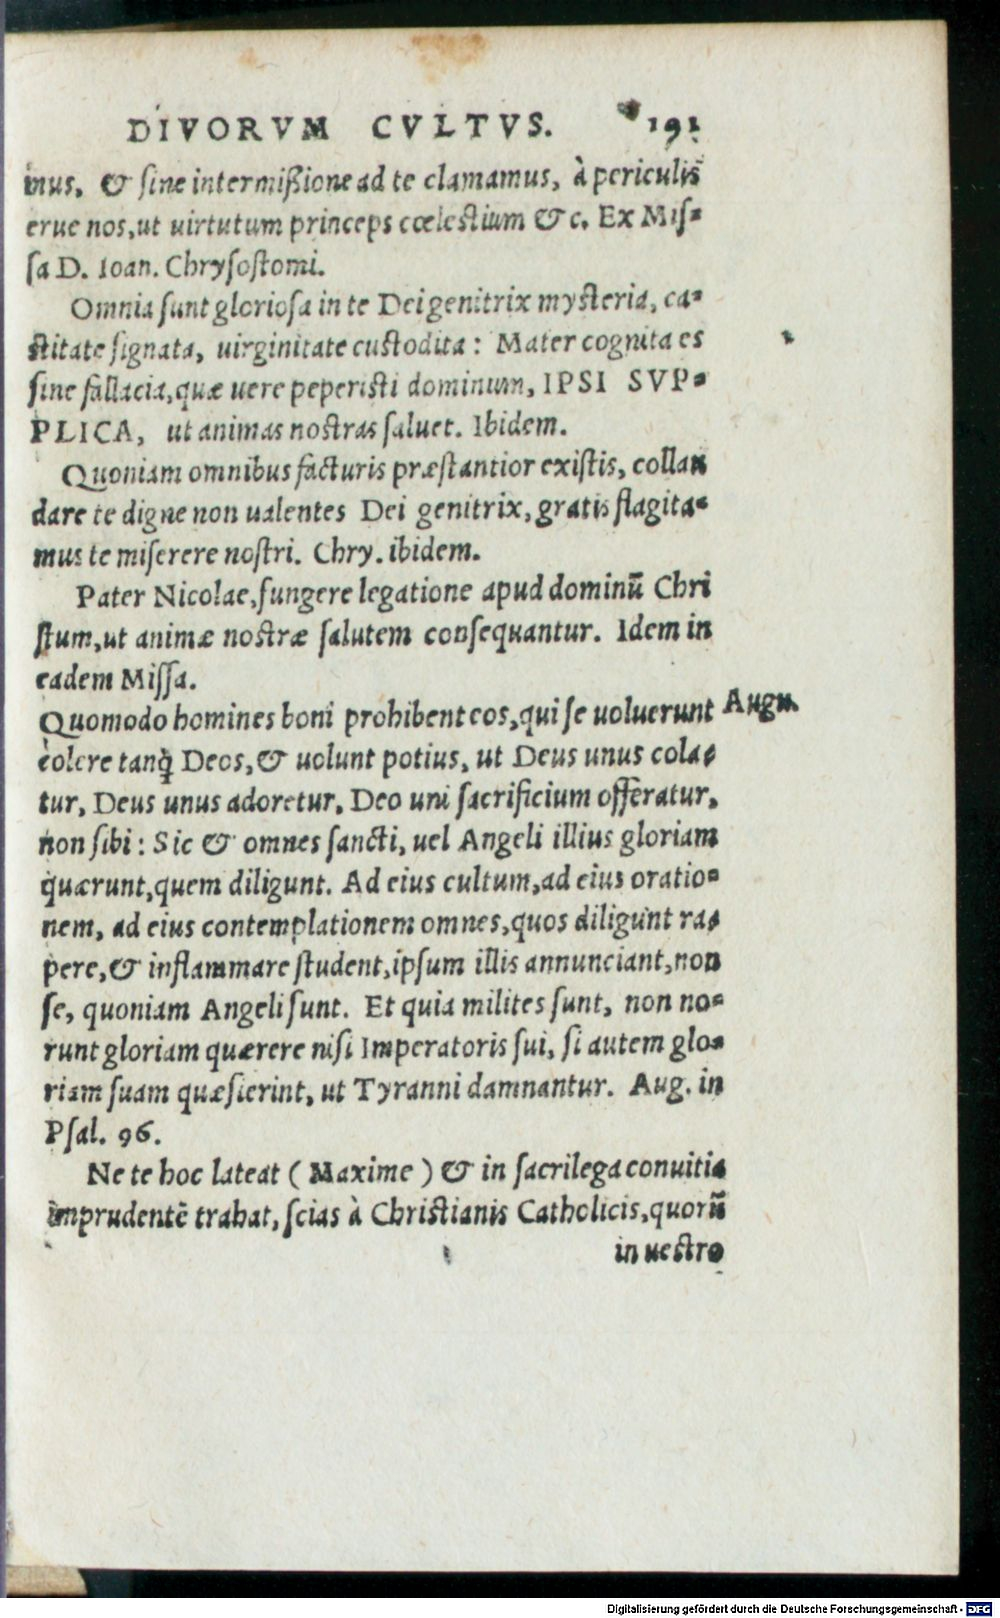 DIVORVM CVLTVS. 191
mus, & sine intermißione ad te clamamus, à periculis
erue nos, ut uirtutum princeps cœlestium & c. Ex Mis-
sa D. Ioan. Chrysostomi.
Omnia sunt gloriosa in te Dei genitrix mysteria, ca-
stitate signata, uirginitate custodita: Mater cognita es
sine fallacia, quæ uere peperisti dominum, IPSI SVP-
PLICA, ut animas nostras saluet. Ibidem.
Quoniam omnibus facturis præstantior existis, collau
dare te digne non ualentes Dei genitrix, gratis flagita-
mus te miserere nostri. Chry. ibidem.
Pater Nicolae, fungere legatione apud dominũ Chri
stum, ut animæ nostræ salutem consequantur. Idem in
eadem Missa.
Quomodo homines boni prohibent eos, qui se uoluerunt Augu.
colere tanq̃ Deos, & uolunt potius, ut Deus unus cola-
tur, Deus unus adoretur, Deo uni sacrificium offeratur,
non sibi: Sic & omnes sancti, uel Angeli illius gloriam
quærunt, quem diligunt. Ad eius cultum, ad eius oratio-
nem, ad eius contemplationem omnes, quos diligunt ra-
pere, & inflammare student, ipsum illis annunciant, non
se, quoniam Angeli sunt. Et quia milites sunt, non no-
runt gloriam quærere nisi Imperatoris sui, si autem glo-
riam suam quæsierint, ut Tyranni damnantur. Aug. in
Psal. 96.
Ne te hoc lateat (Maxime) & in sacrilega conuitia
imprudentẽ trahat, scias à Christianis Catholicis, quorũ
in uestro
Digitalisierung gefördert durch die Deutsche Forschungsgemeinschaft - DFG